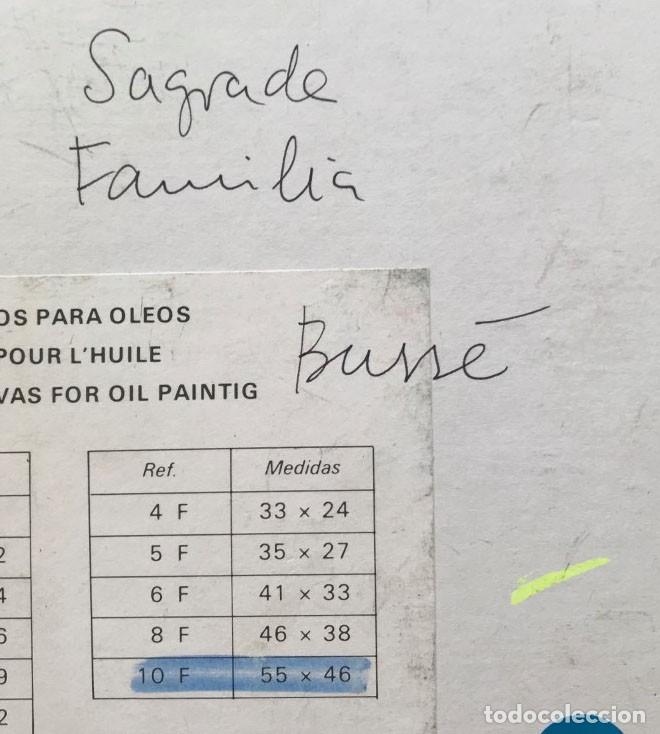 Sagrade
Familia
OS PARA OLEOS
POUR L'HUILE
VAS FOR OIL PAINTIG
Bussé
Ref. Medidas
4 F 33 × 24
5 F 35 × 27
2
6 F 41 × 33
4
8 F 46 × 38
6
10 F 55 × 46
9
2
todocoleccion